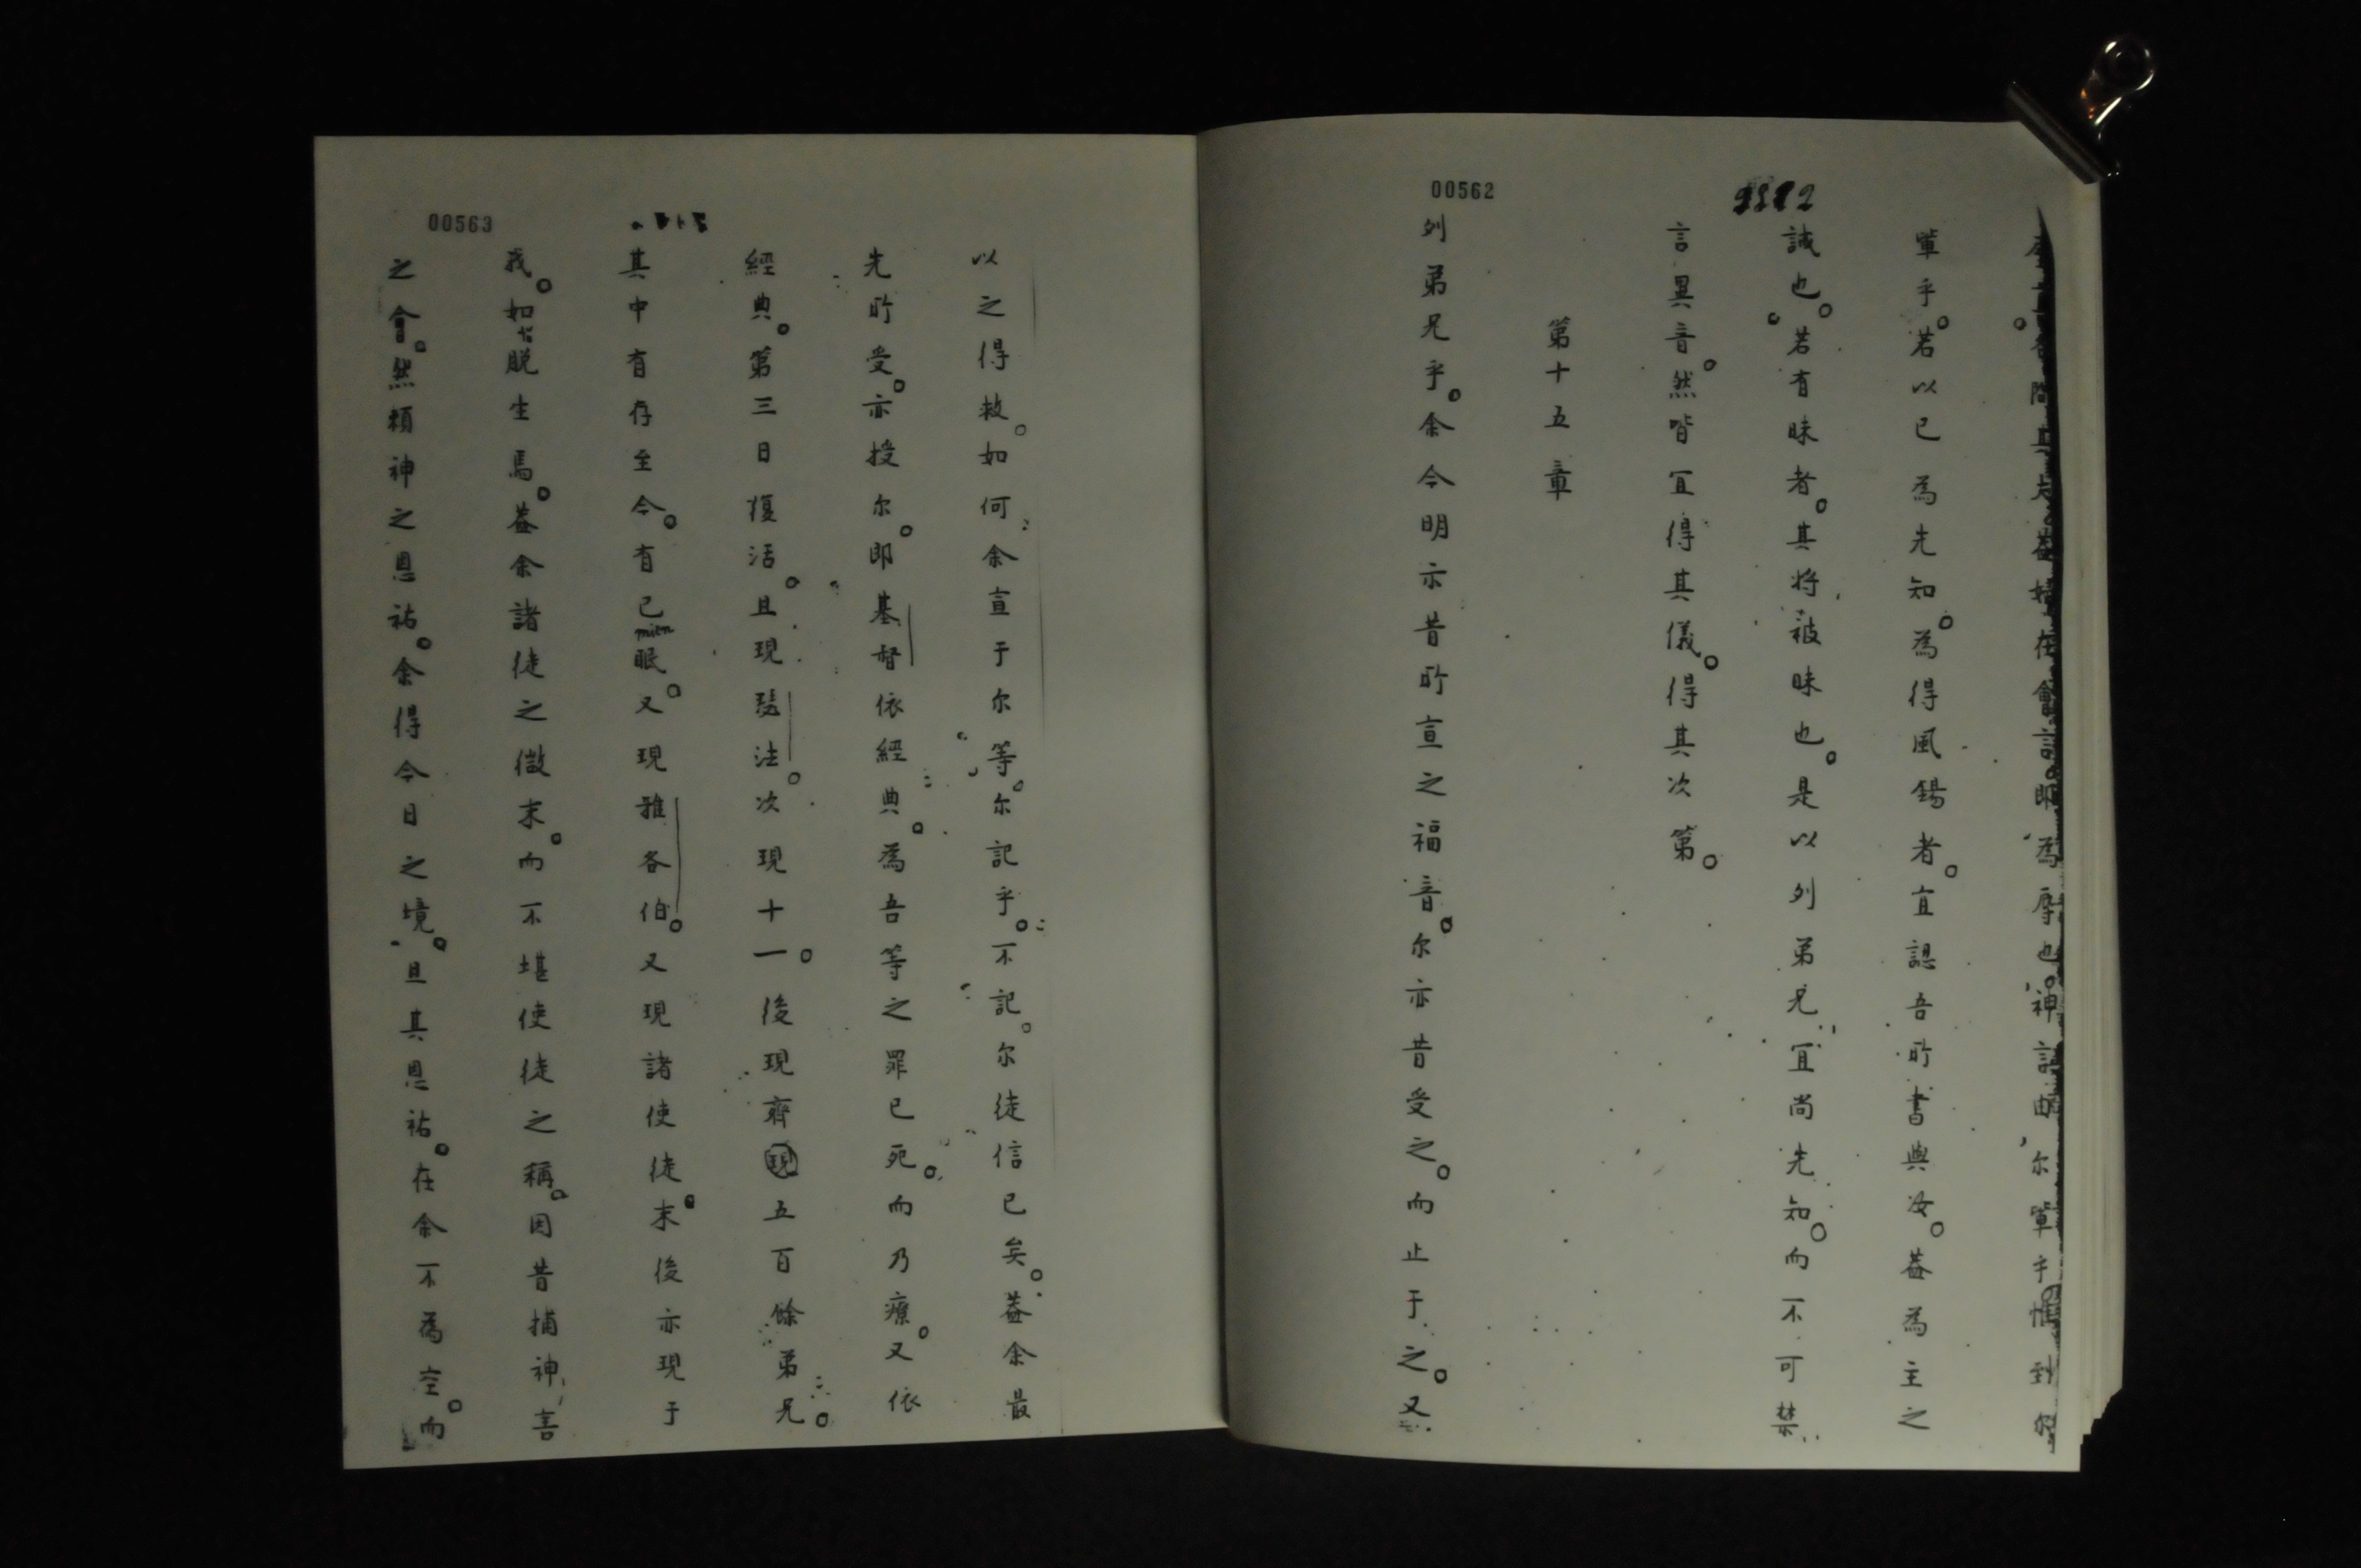 00562
問其夫。蓋婦在會詞。即為辱也。神詞由尔輩乎。惟對
輩乎。若以已為先知。為得風錫者。宜認吾所書與汝。蓋為主之
誡也。若有昧者。其將被昧也。是以列弟兄宜尚先知。而不可禁
言異音。然皆宜得其儀。得其次第。
第十五章
列弟兄乎。余今明示昔所宣之福音。尔亦昔受之。而止于之。又
00563
以之得救。如何余宣于尔等。尔記乎。不記。尔徒信已矣。蓋余最
先所受。亦授尔。即基督依經典。為吾等之罪已死。而乃瘞。又依
經典。第三日復活。且現琵法。次現十一。後現齊現五百餘弟兄。
其中有存至今。有已眠。又現雅各伯。又現諸使徒。末後亦現于
mien
我。如脱生焉。蓋余諸徒之微末。而不堪使徒之稱。因昔捕神
之會。然賴神之恩祐。余得今日之境。且其恩祐。在余不為空。而